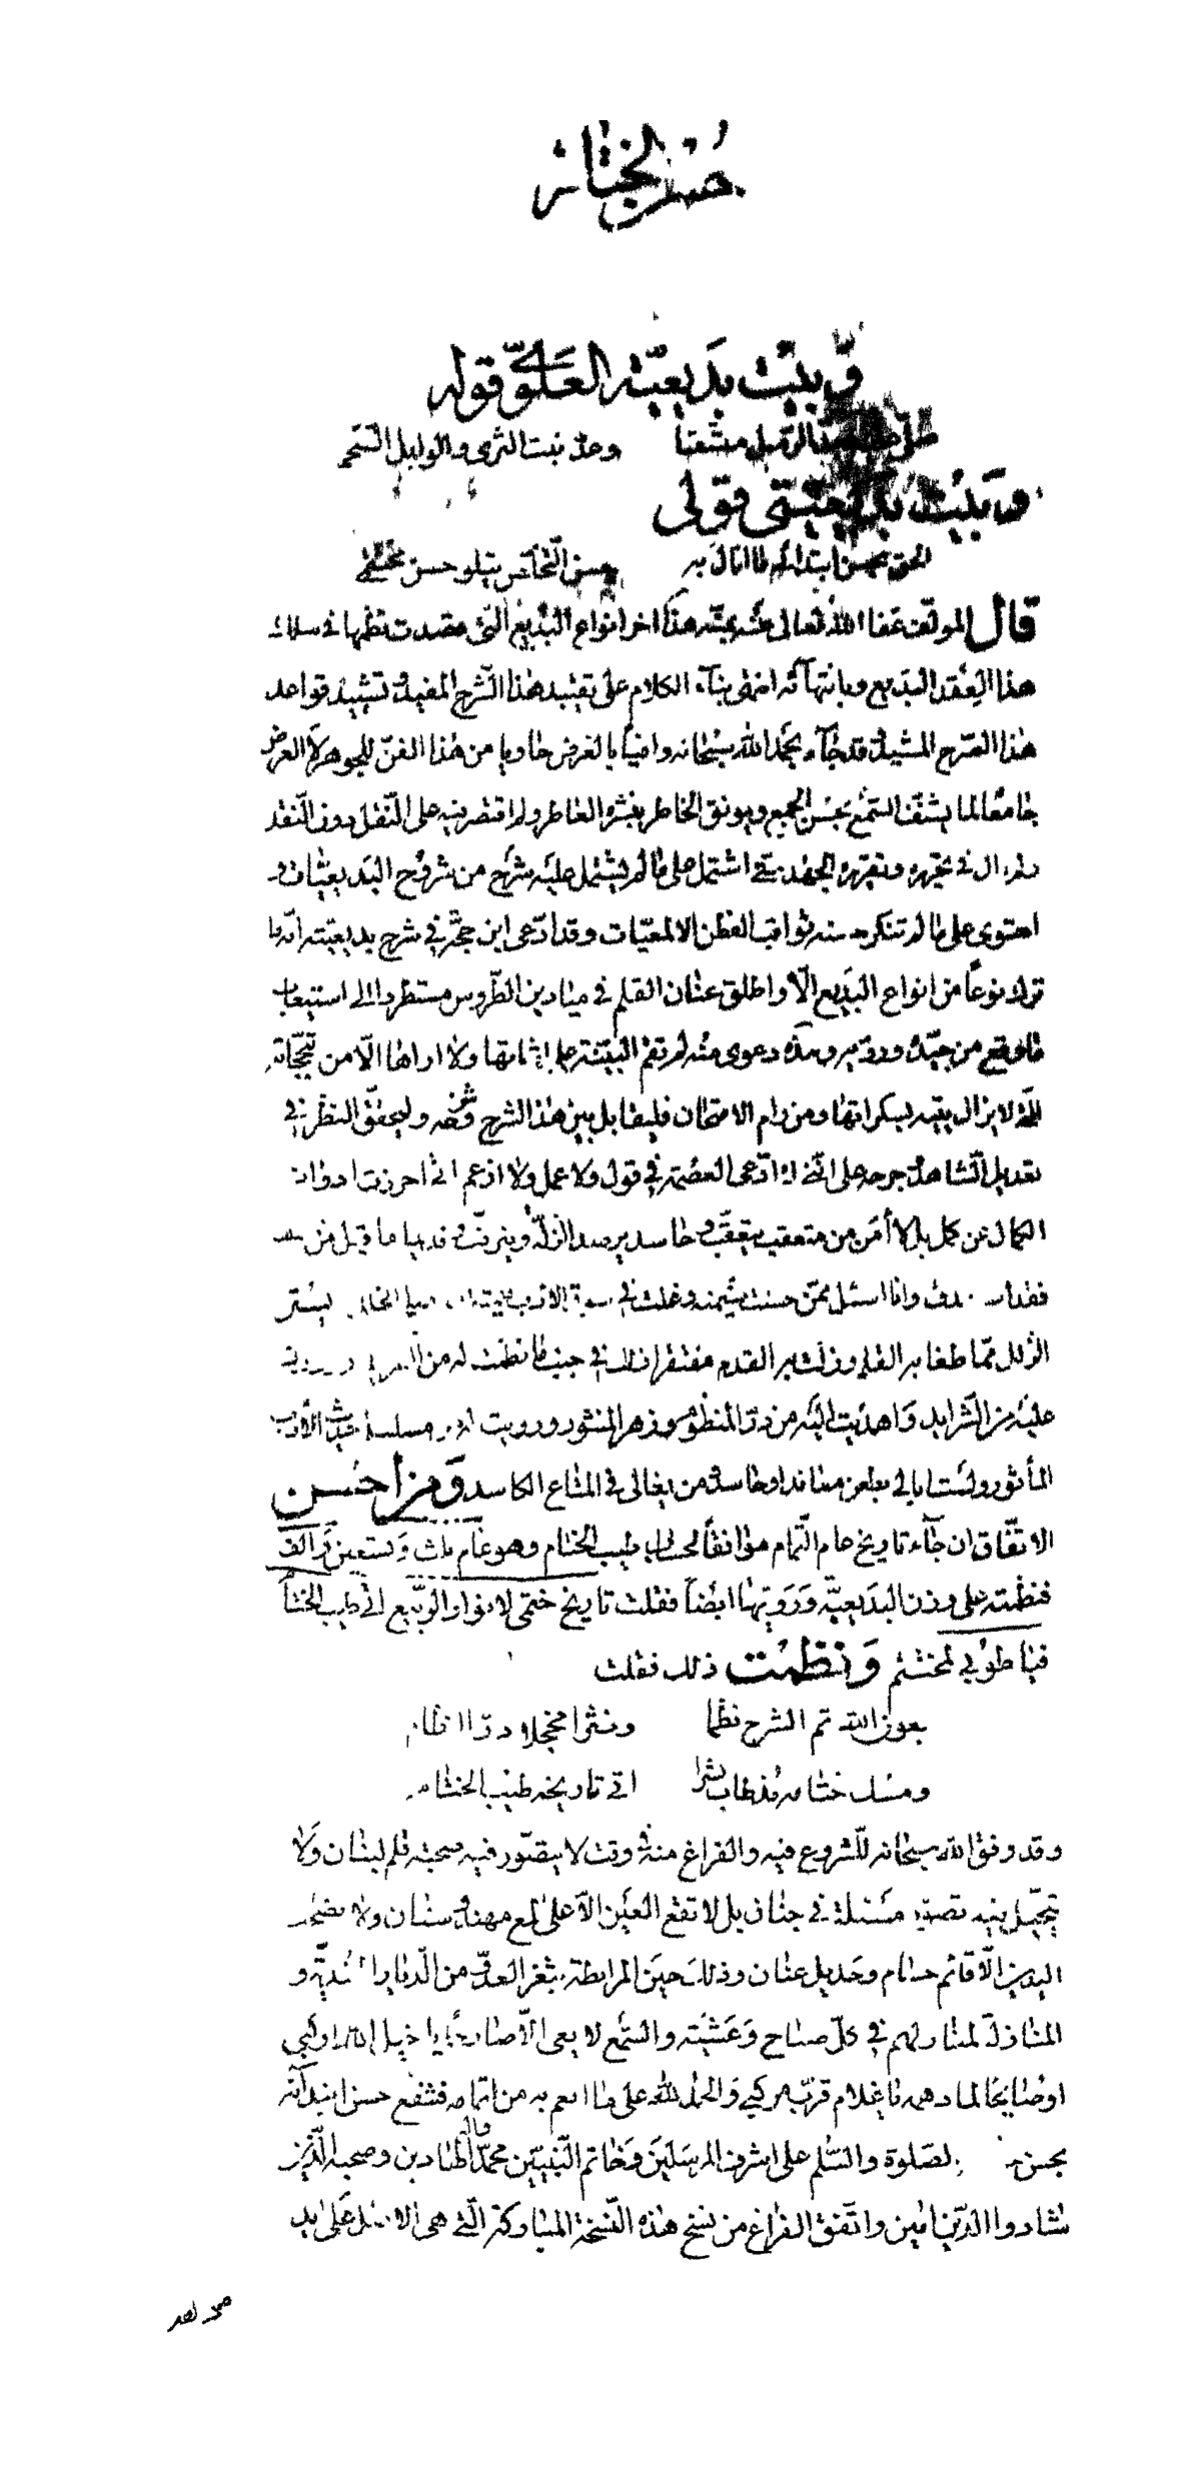 حسن الختام
وبيت بديعية العلوي قوله
الرمل مشتقا وعد نبت الثرى والوابل السجم
وبيت بديعيتي قولي
الحق بحسن ابتدائي ما انال به حسن التخلص يتلو حسن مختتمي
قال المولف عفا الله تعالى عنه بمنه هذا اخر انواع البديع التي قصدت نظمها في سلك
هذا العقد البديع وبانتهائه انتهى بناء الكلام على تقييد هذا الشرح المفيد وتشييد قواعد
هذا الصرح المشيد وقد جاء بحمد الله سبحانه وافيا بالغرض حاويا من هذا الفن للجوهر لا العرض
جامعا لما يشنف السمع بحسن الجمع ويونق الخاطر بنشره العاطر ولم اقتصر فيه على النقل دون النقد
ولم ال في تحريره وتقريره الجهد حتى اشتمل على ما لم يشتمل عليه شرح من شروح البديعيات و
احتوى على ما لم تنكر حسنه ثواقب الفطن الالمعيات وقد ادعى ابن حجة في شرح بديعيته انه ما
ترك نوعا من انواع البديع الا واطلق عنان القلم في ميادين الطروس مستطردا الى استيعاب
ما وقع من جيده ورديه وهذه دعوى منه لم تقم البينة على اثباتها ولا اراها الا من تبجحاته
التي لا يزال يتيه بسكراتها ومن رام الامتحان فليقابل بين هذا الشرح وشرحه وليحقق النظر في
تعديل الشاهد وجرحه على انني لا ادعى العصمة في قول ولا عمل ولا ازعم اني احرزت ادوات
الكمال عن كمل بل لا أمن من متعقب يتعقب وحاسد يرصد الزلة ويترقب وقديما ما قيل من
فقد استهدف وانا اسئل ممن حسنت شيمته وغلت في الادب يستر
الزلل مما طغا به القلم وزلت به القدم مفتقرا ذلك في جنب ما نظمت له من
عليه من الشرايد واهديت اليه من در المنظوم وزهر المنثور ورويت له من مسلسل حديث الأدب
المأثور ولست ابالي بطعن معاند او حاسد ومن يغالى في المتاع الكاسد ومن احسن
الاتفاق ان جاء تاريخ عام التمام موافقا لحساب طيب الختام وهو عام ثلث وتسعين والف
فنظمته على وزن البديعية ورويها ايضا فقلت تاريخ ختمي لانوار البديع اتى طيب الختا
فيا طوبى لمختتم ونظمت ذلك فقلت
بعون الله تم الشرح نظما ونثرا مخجلا در النظام
ومسك ختامه مذ طاب نشرا اتى تاريخه طيب الختام
وقد وفق الله سبحانه للشروع فيه والفراغ منه في وقت لا يتصور فيه صحبة قلم لبنان ولا
يتحيل فيه تصور مسئلة في جنان بل لا تقع العين الا على لمع مهند وسنان ولا تضجر
اليدين الا قائم حسام وجديل عنان وذلك حين المرابطة بثغر العدو من الديار الهندية و
المنازلة لمناولهم في كل صباح وعشية والسمع لا يعى الا صارخا يا خيل الله اركبي
او صايحا لما دهمه يا غلام قرب مركبي والحمد لله على ما انعم به من اتمامه فشفع حسن ابتدائه
بحسن الصلوة والسلم على اشرف المرسلين وخاتم النبيين محمد واله الهادين وصحبه الذين
شادوا الدين امين واتفق الفراغ من نسخ هذه النسخة المباركة التي هى الاصل على يد